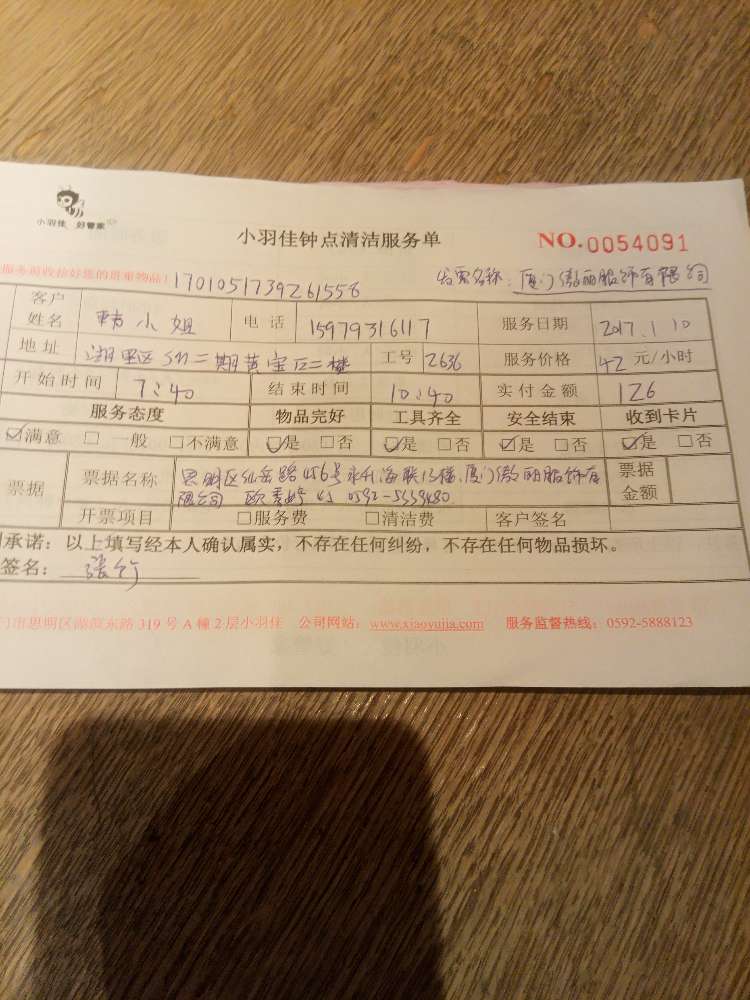 小羽佳 好管家
小羽佳钟点清洁服务单 NO.0054091
服务前收拾好您的贵重物品! 1701051739261558 发票名称:厦门傲丽服饰有限公司
客户姓名 韩小姐 电话 15979316117 服务日期 2017.1.10
地址 湖里区SM二期黄宝石二楼 工号 2636 服务价格 42元/小时
开始时间 7:40 结束时间 10:40 实付金额 126
服务态度 物品完好 工具齐全 安全结束 收到卡片
☑满意 □一般 □不满意 ☑是 □否 ☑是 □否 ☑是 □否 ☑是 □否
票据 票据名称 思明区仙岳路456号 海联13楼,厦门傲丽服饰有 票据金额
限公司 欧 收 0592-5559480
开票项目 □服务费 □清洁费 客户签名
承诺:以上填写经本人确认属实,不存在任何纠纷,不存在任何物品损坏。
签名:张竹
门市思明区湖滨东路319号A幢2层小羽佳 公司网站:www.xiaoyujia.com 服务监督热线:0592-5888123